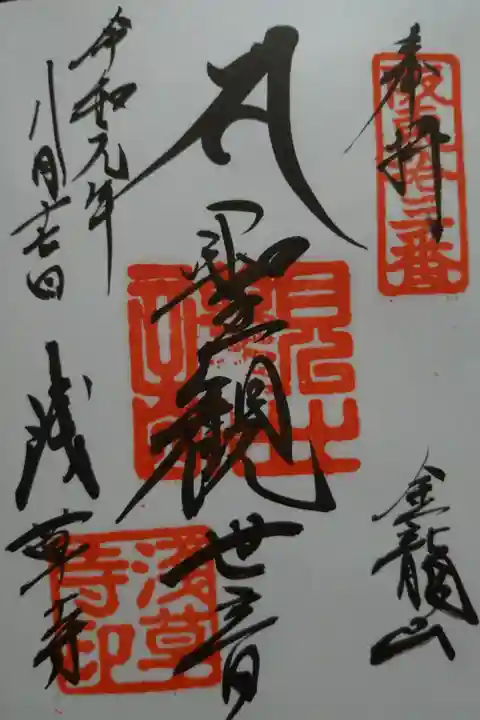 奉拝
坂東拾三番
金龍山
聖観世音
令和元年
八月十七日
浅草寺
浅草寺印